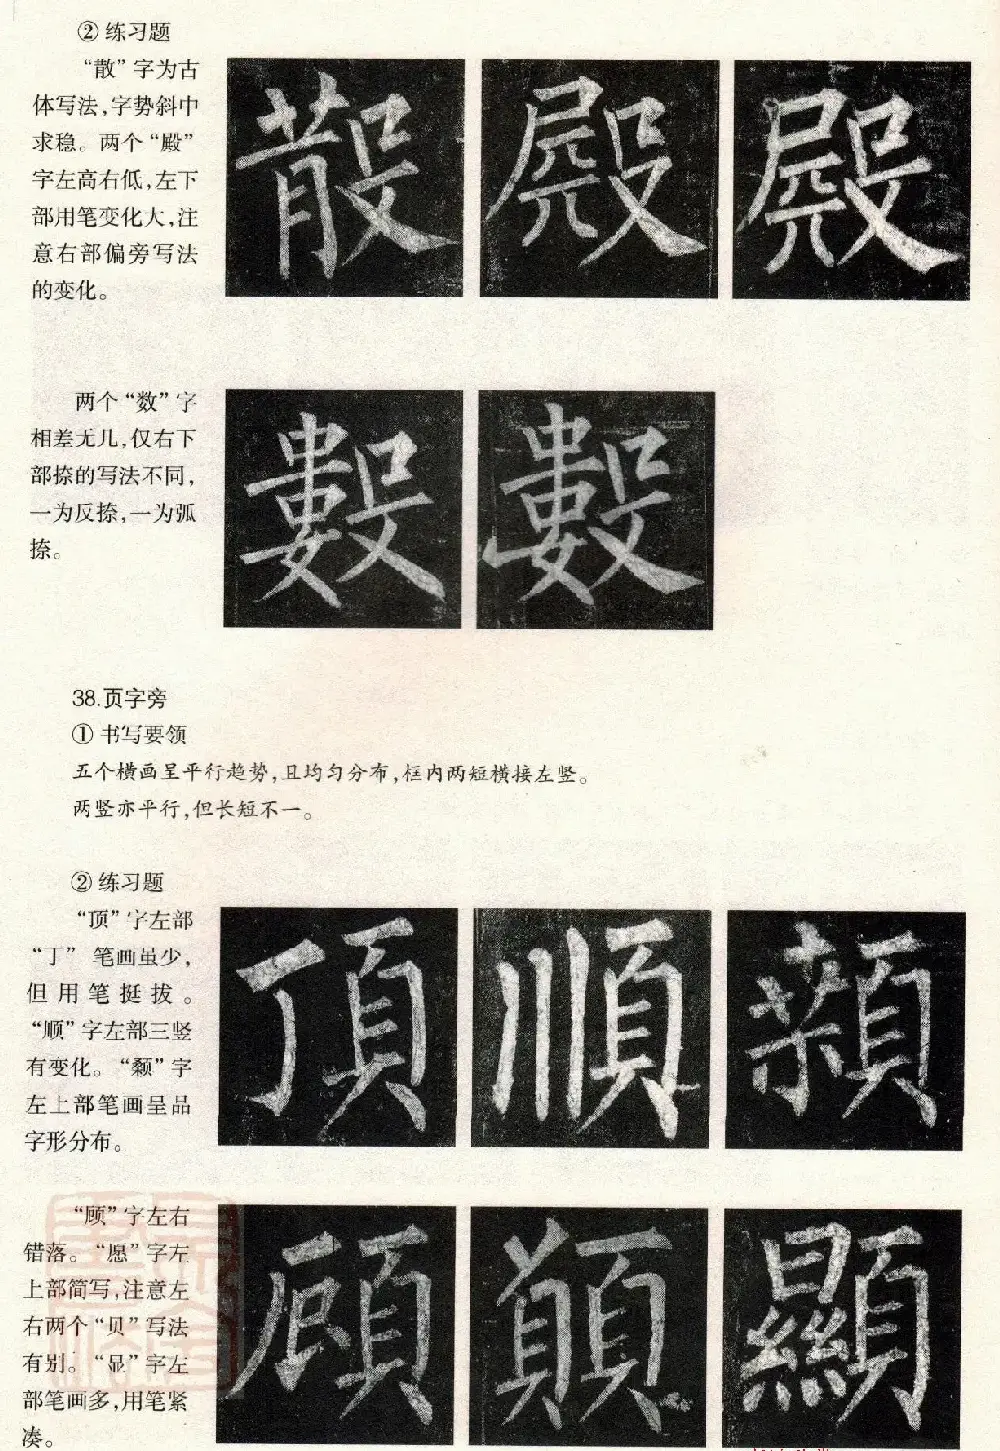 ② 练习题
“散”字为古
体写法,字势斜中
求稳。两个“殿”
字左高右低,左下
部用笔变化大,注
意右部偏旁写法
的变化。
散 殿 殿
两个“数”字
相差无几,仅右下
部捺的写法不同,
一为反捺,一为弧
捺。
數 數
38.页字旁
① 书写要领
五个横画呈平行趋势,且均匀分布,框内两短横接左竖。
两竖亦平行,但长短不一。
② 练习题
“顶”字左部
“丁” 笔画虽少,
但用笔挺拔。
“顺”字左部三竖
有变化。“颡”字
左上部笔画呈品
字形分布。
頂 順 顙
“顾”字左右
错落。“愿”字左
上部简写,注意左
右两个“贝”写法
有别。“显”字左
部笔画多,用笔紧
凑。
顧 顯